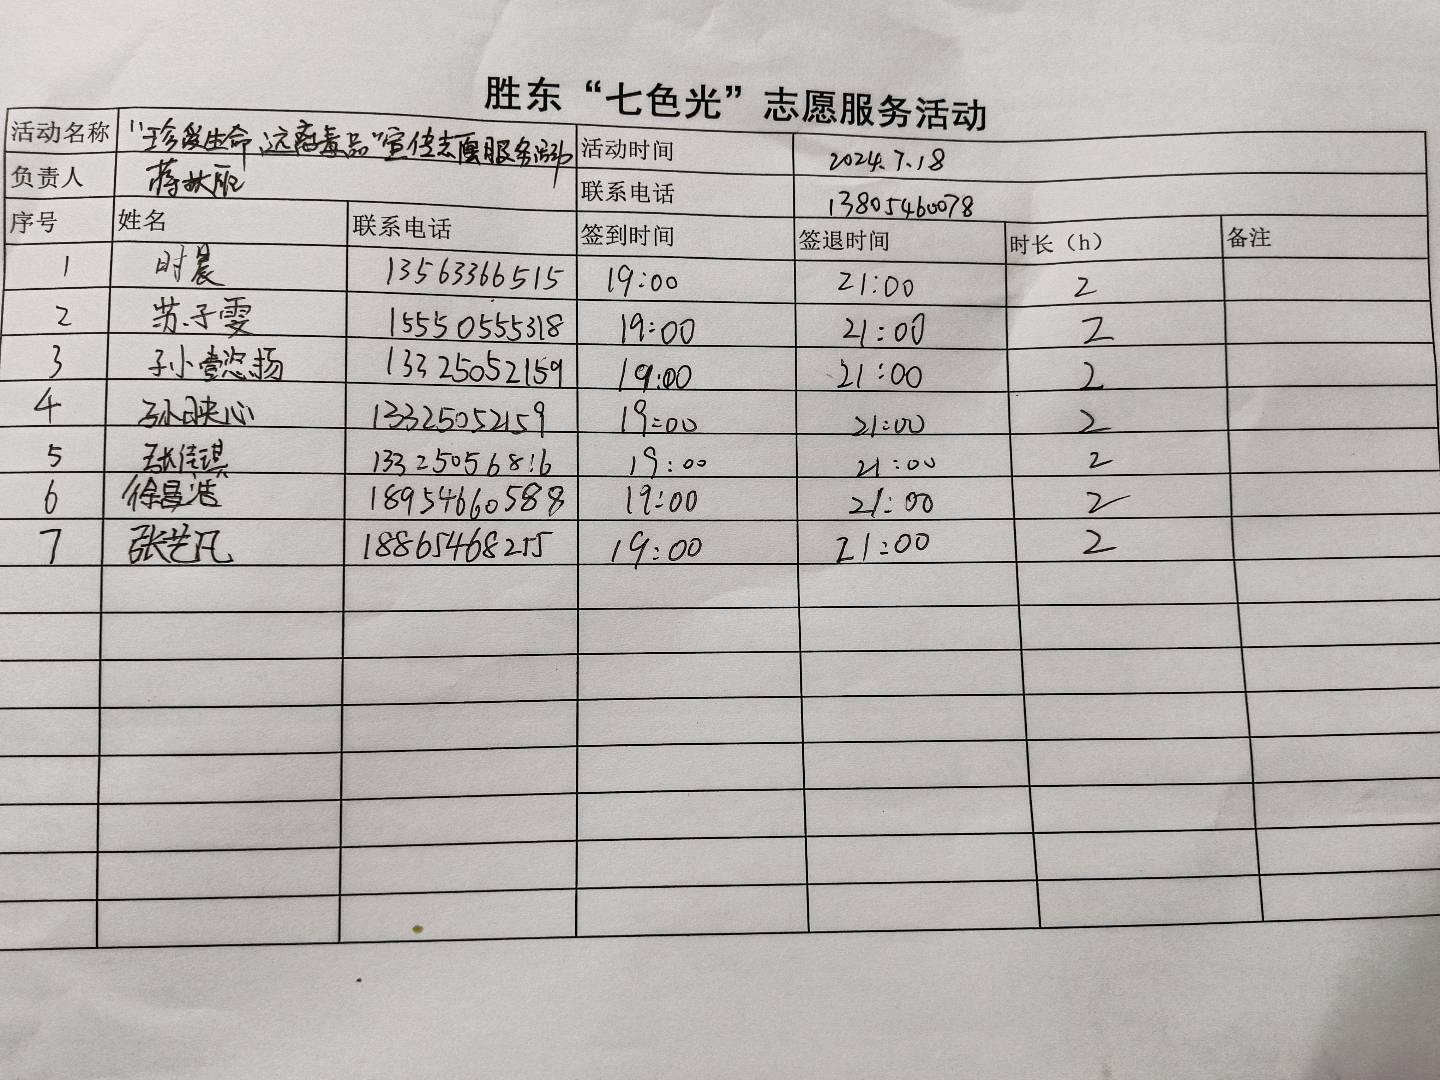 胜东“七色光”志愿服务活动
活动名称 “珍爱生命,远离毒品”宣传志愿服务活动 活动时间 2024.7.18
负责人 蒋 联系电话 13805460078
序号 姓名 联系电话 签到时间 签退时间 时长（h） 备注
1 时晨 13563366515 19:00 21:00 2
2 苏子雯 15550555318 19:00 21:00 2
3 13325052159 19:00 21:00 2
4 13325052159 19:00 21:00 2
5 张佳琪 13325056816 19:00 21:00 2
6 徐昌浩 18954660588 19:00 21:00 2
7 张艺凡 18865468255 19:00 21:00 2